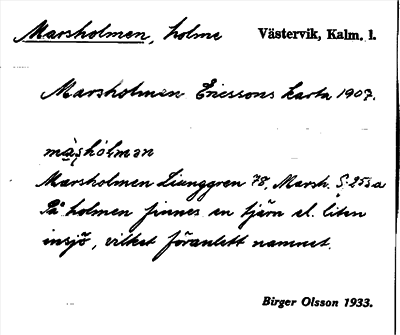 Marsholmen, holme Västervik, Kalm. l.
Marsholmen Ericssons karta 1907.
màṣhòlman
Marsholmen Ljunggren 78, Marsh.
På holmen finnes en tjärn el. liten
insjö, vilket föranlett namnet.
Birger Olsson 1933.